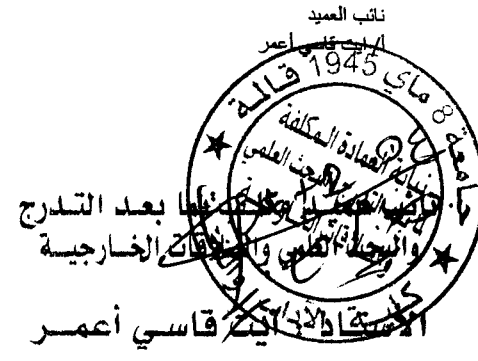 نائب العميد
أ/ ايت قاسي أعمر
جامعة 8 ماي 1945 قالمة
نيابة العمادة المكلفة
البحث العلمي
نائب العميد مكلف بما بعد التدرج
والبحث العلمي والعلاقات الخارجية
الأستاذ: آيت قاسي أعمر